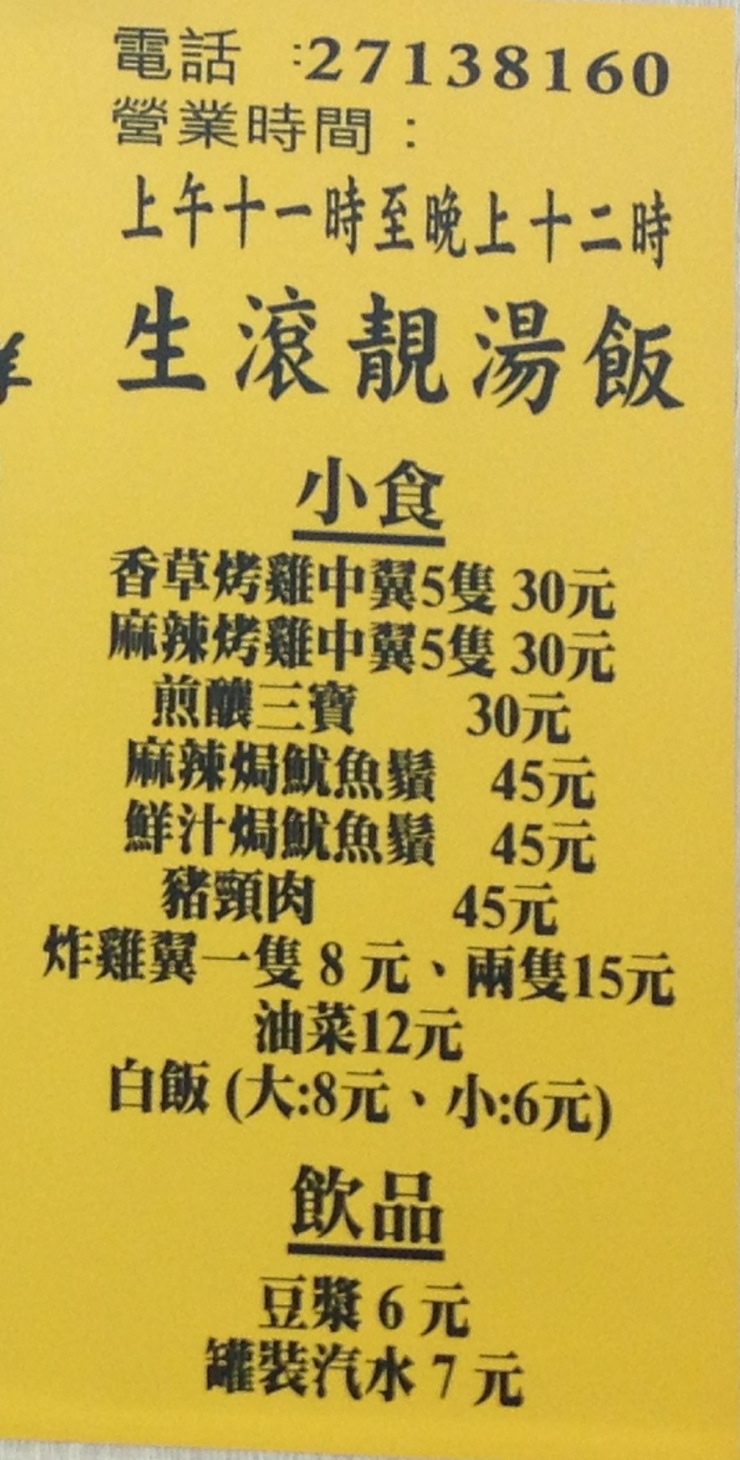 電話 :27138160
營業時間 :
上午十一時至晚上十二時
生滾靚湯飯
小食
香草烤雞中翼5隻 30元
麻辣烤雞中翼5隻 30元
煎釀三寶 30元
麻辣焗魷魚鬚 45元
鮮汁焗魷魚鬚 45元
豬頸肉 45元
炸雞翼一隻 8 元、兩隻15元
油菜12元
白飯 (大:8元、小:6元)
飲品
豆漿 6 元
罐裝汽水 7 元